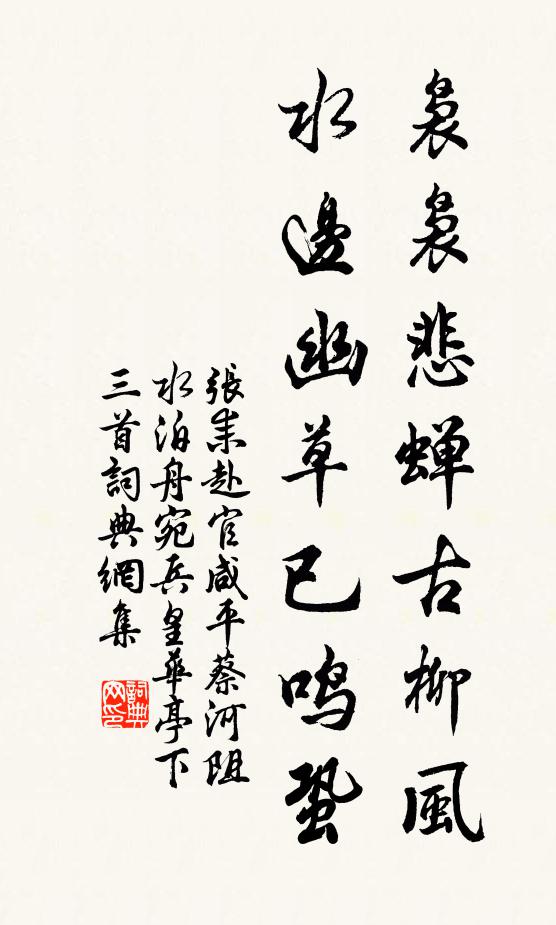 裊裊悲蟬古柳風
水邊幽草已鳴蛩
張耒赴官咸平蔡河阻
水泊舟宛兵皇華亭下
三首詞典網集
詞典
网印